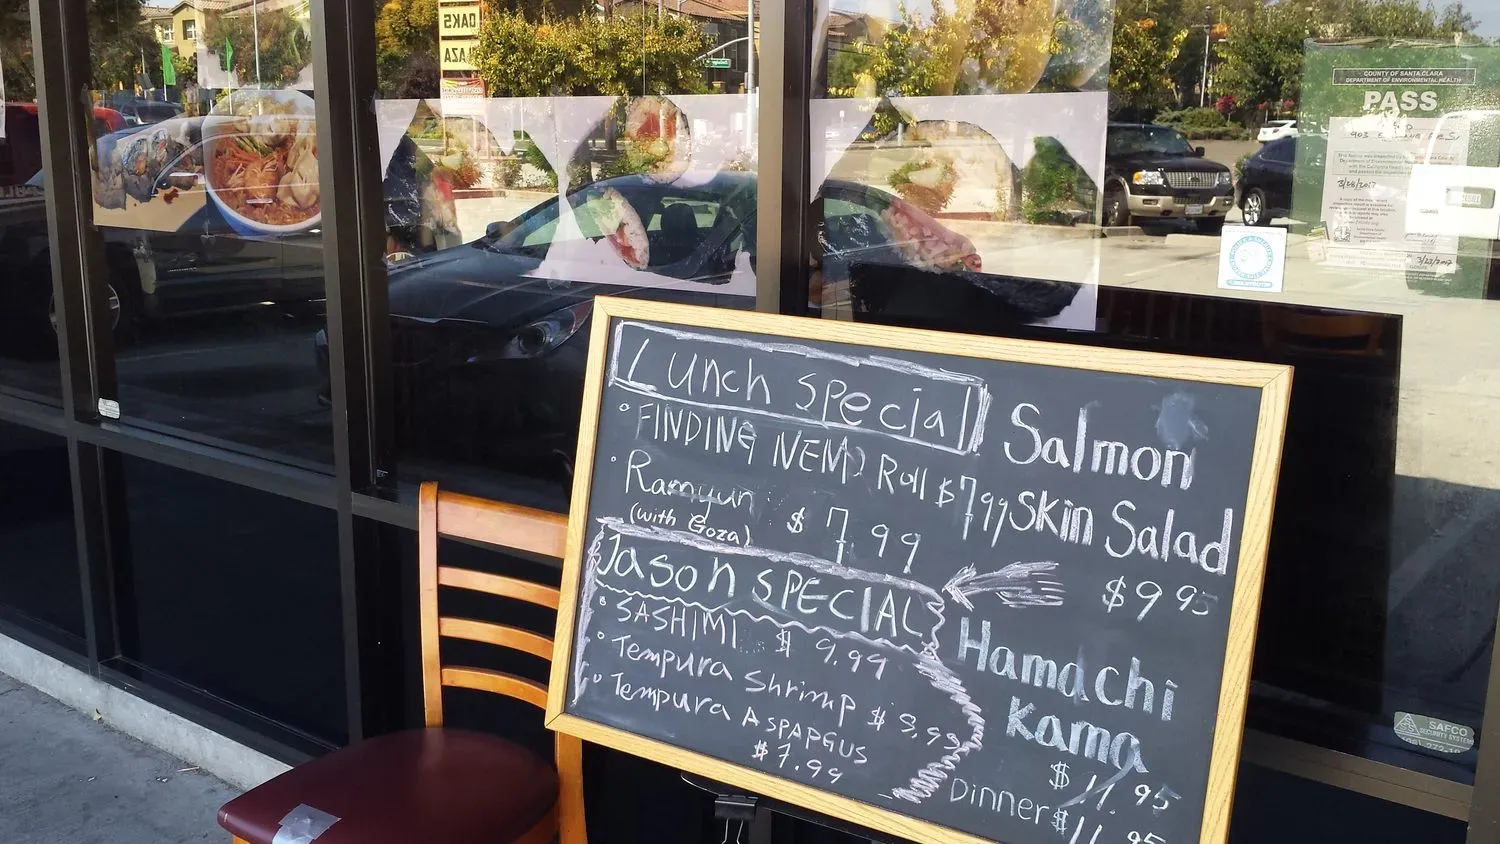 OAKS
PLAZA
COUNTY OF SANTA CLARA
DEPARTMENT OF ENVIRONMENTAL HEALTH
PASS
Lunch Special
° FINDING NEMO Roll $7.99
· Ramyun $7.99
(with Goza)
Jason SPECIAL
° SASHIMI $ 9.99
° Tempura Shrimp $ 9.99
° Tempura ASPAPGUS
$7.99
Salmon
Skin Salad
$9.95
Hamachi
Kama
$11.95
Dinner $11.95
SAFCO
SECURITY SYSTEMS